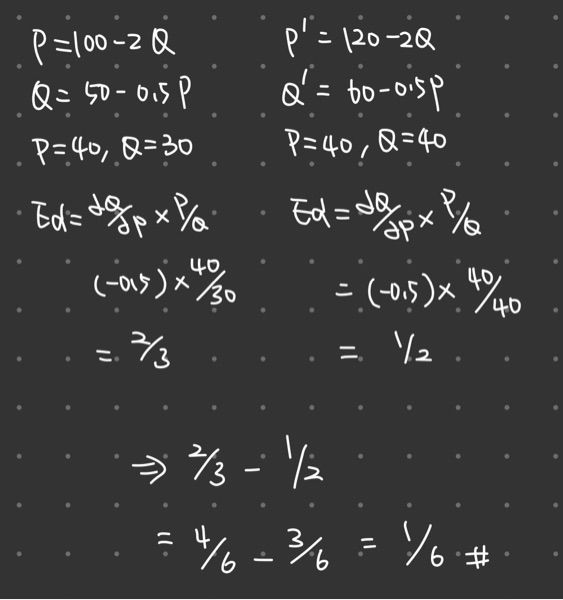 P=100-2Q
Q=50-0.5P
P=40, Q=30
Ed=∂Q/∂P×P/Q
(-0.5)×40/30
=2/3
P'=120-2Q
Q'=60-0.5P
P=40, Q=40
Ed=∂Q/∂P×P/Q
=(-0.5)×40/40
=1/2
⇒2/3-1/2
=4/6-3/6=1/6 #